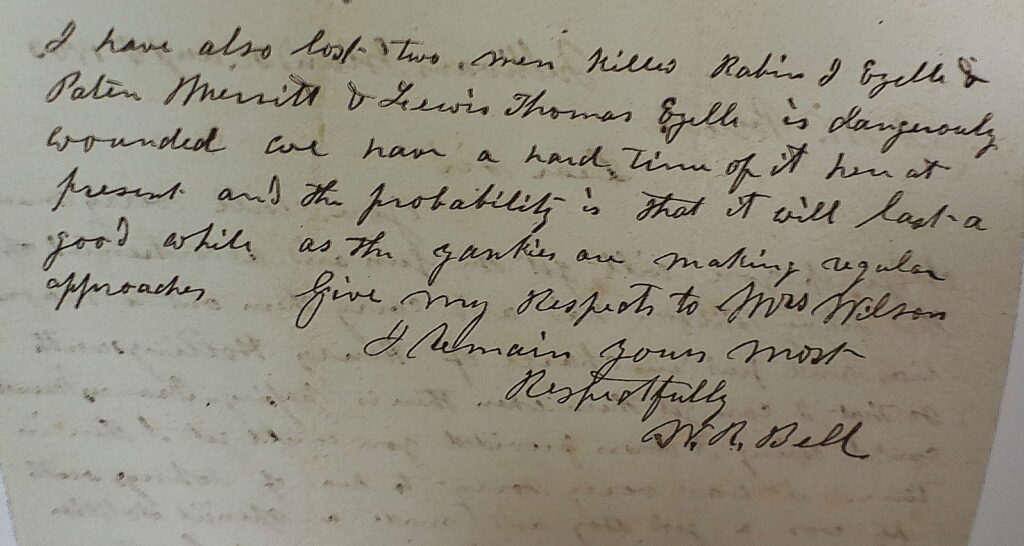 I have also lost two men killed Rabin J Ezelle &
Paten Merritt & Leewis Thomas Ezelle is dangerously
wounded we have a hard time of it here at
present and the probability is that it will last a
good while as the yankies are making regular
approaches Give my Respects to Mrs Wilson
I Remain yours most
Respectfully
W. R. Bell